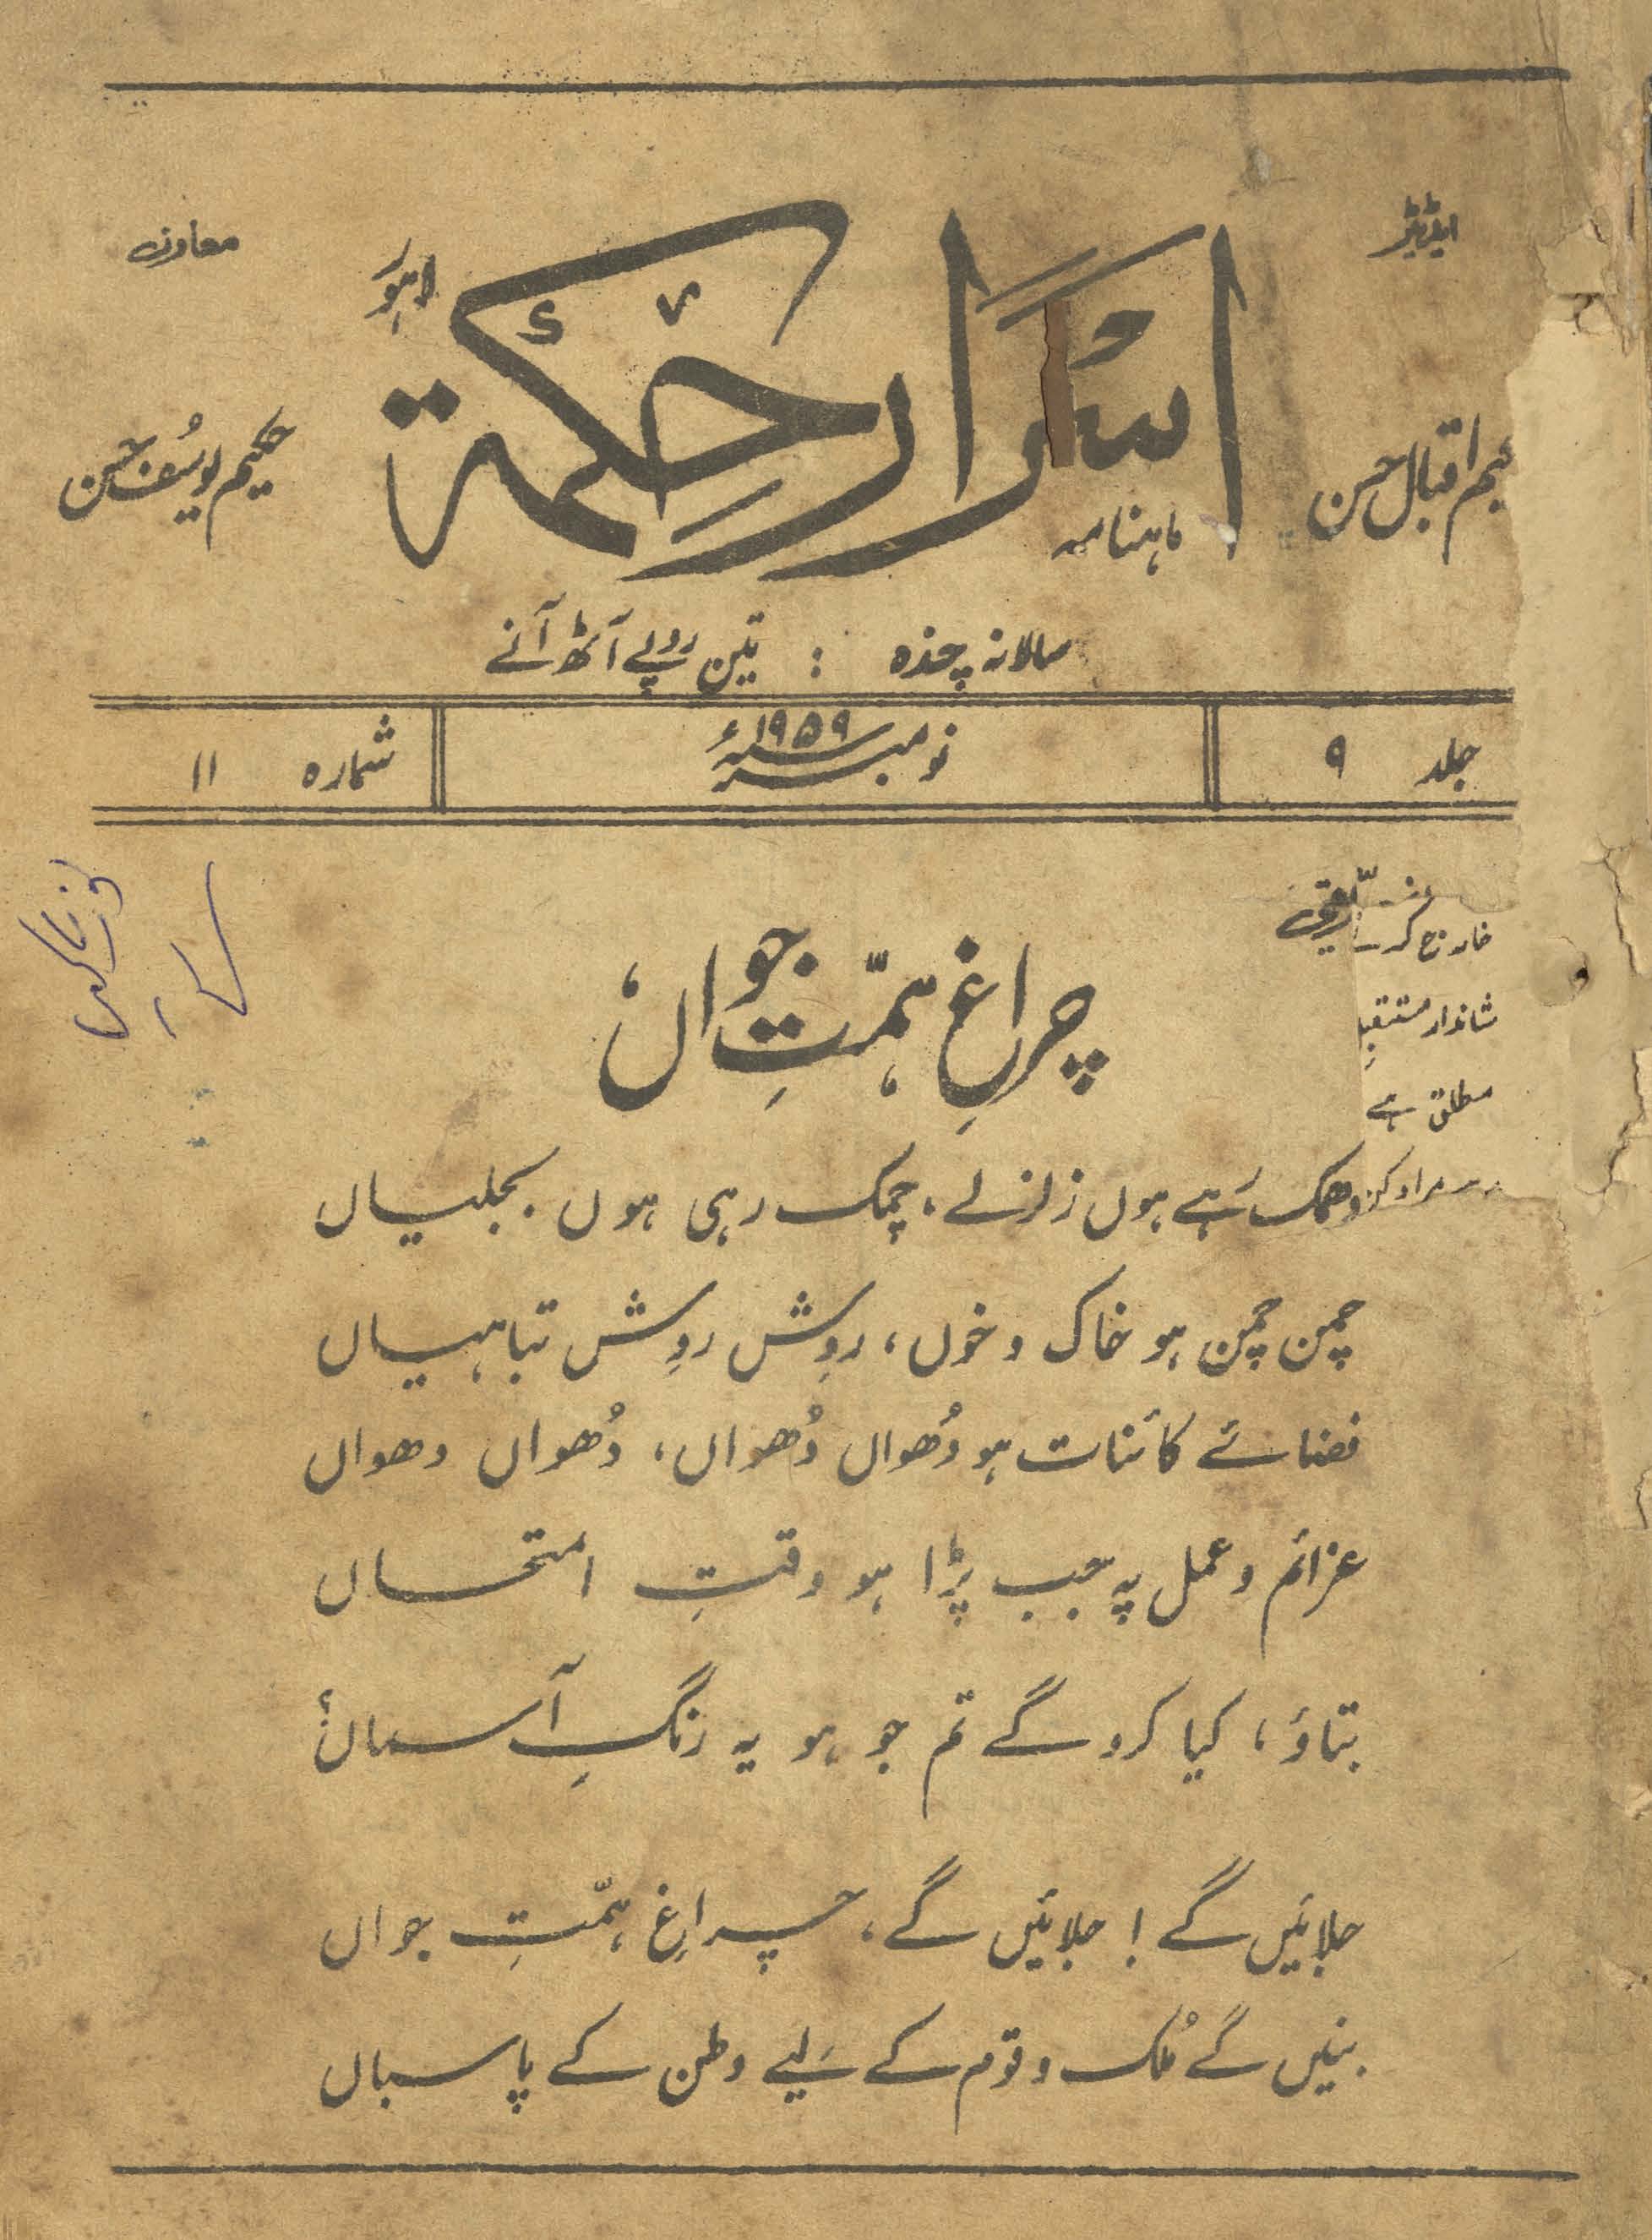 ایڈیٹر
اقبال حسن
معاون
حکیم یوسف حسن
ماہنامہ
اسرارِ حکمة
لاہور
سالانہ چندہ : تین روپے آٹھ آنے
جلد ۹
نومبر ۱۹۵۹ء
شمارہ ۱۱
شاندار مستقبل
مطلق ہے
چراغِ ہمّتِ جواں
دھمک رَہے ہوں زلزلے، چمک رہی ہوں بجلیاں
چمن چمن ہو خاک و خوں، روِش روِش تباہیاں
فضائے کائنات ہو دُھواں دُھواں، دُھواں دھواں
عزائم و عمل پہ جب پڑا ہو وقتِ امتحاں
بتاؤ، کیا کرو گے تم جو ہو یہ رنگِ آسماں؟
جلائیں گے! جلائیں گے، چراغِ ہمّتِ جواں
بنیں گے مُلک و قوم کے لَیے وطن کے پاسباں